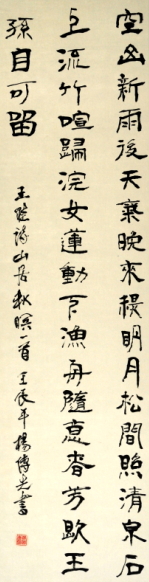 空山新雨後天氣晚來穐明月松間照清泉石
上流竹喧歸浣女蓮動下漁舟隨意春芳歇王
孫自可留
王維詩山居秋暝一首壬辰年楊傳光書